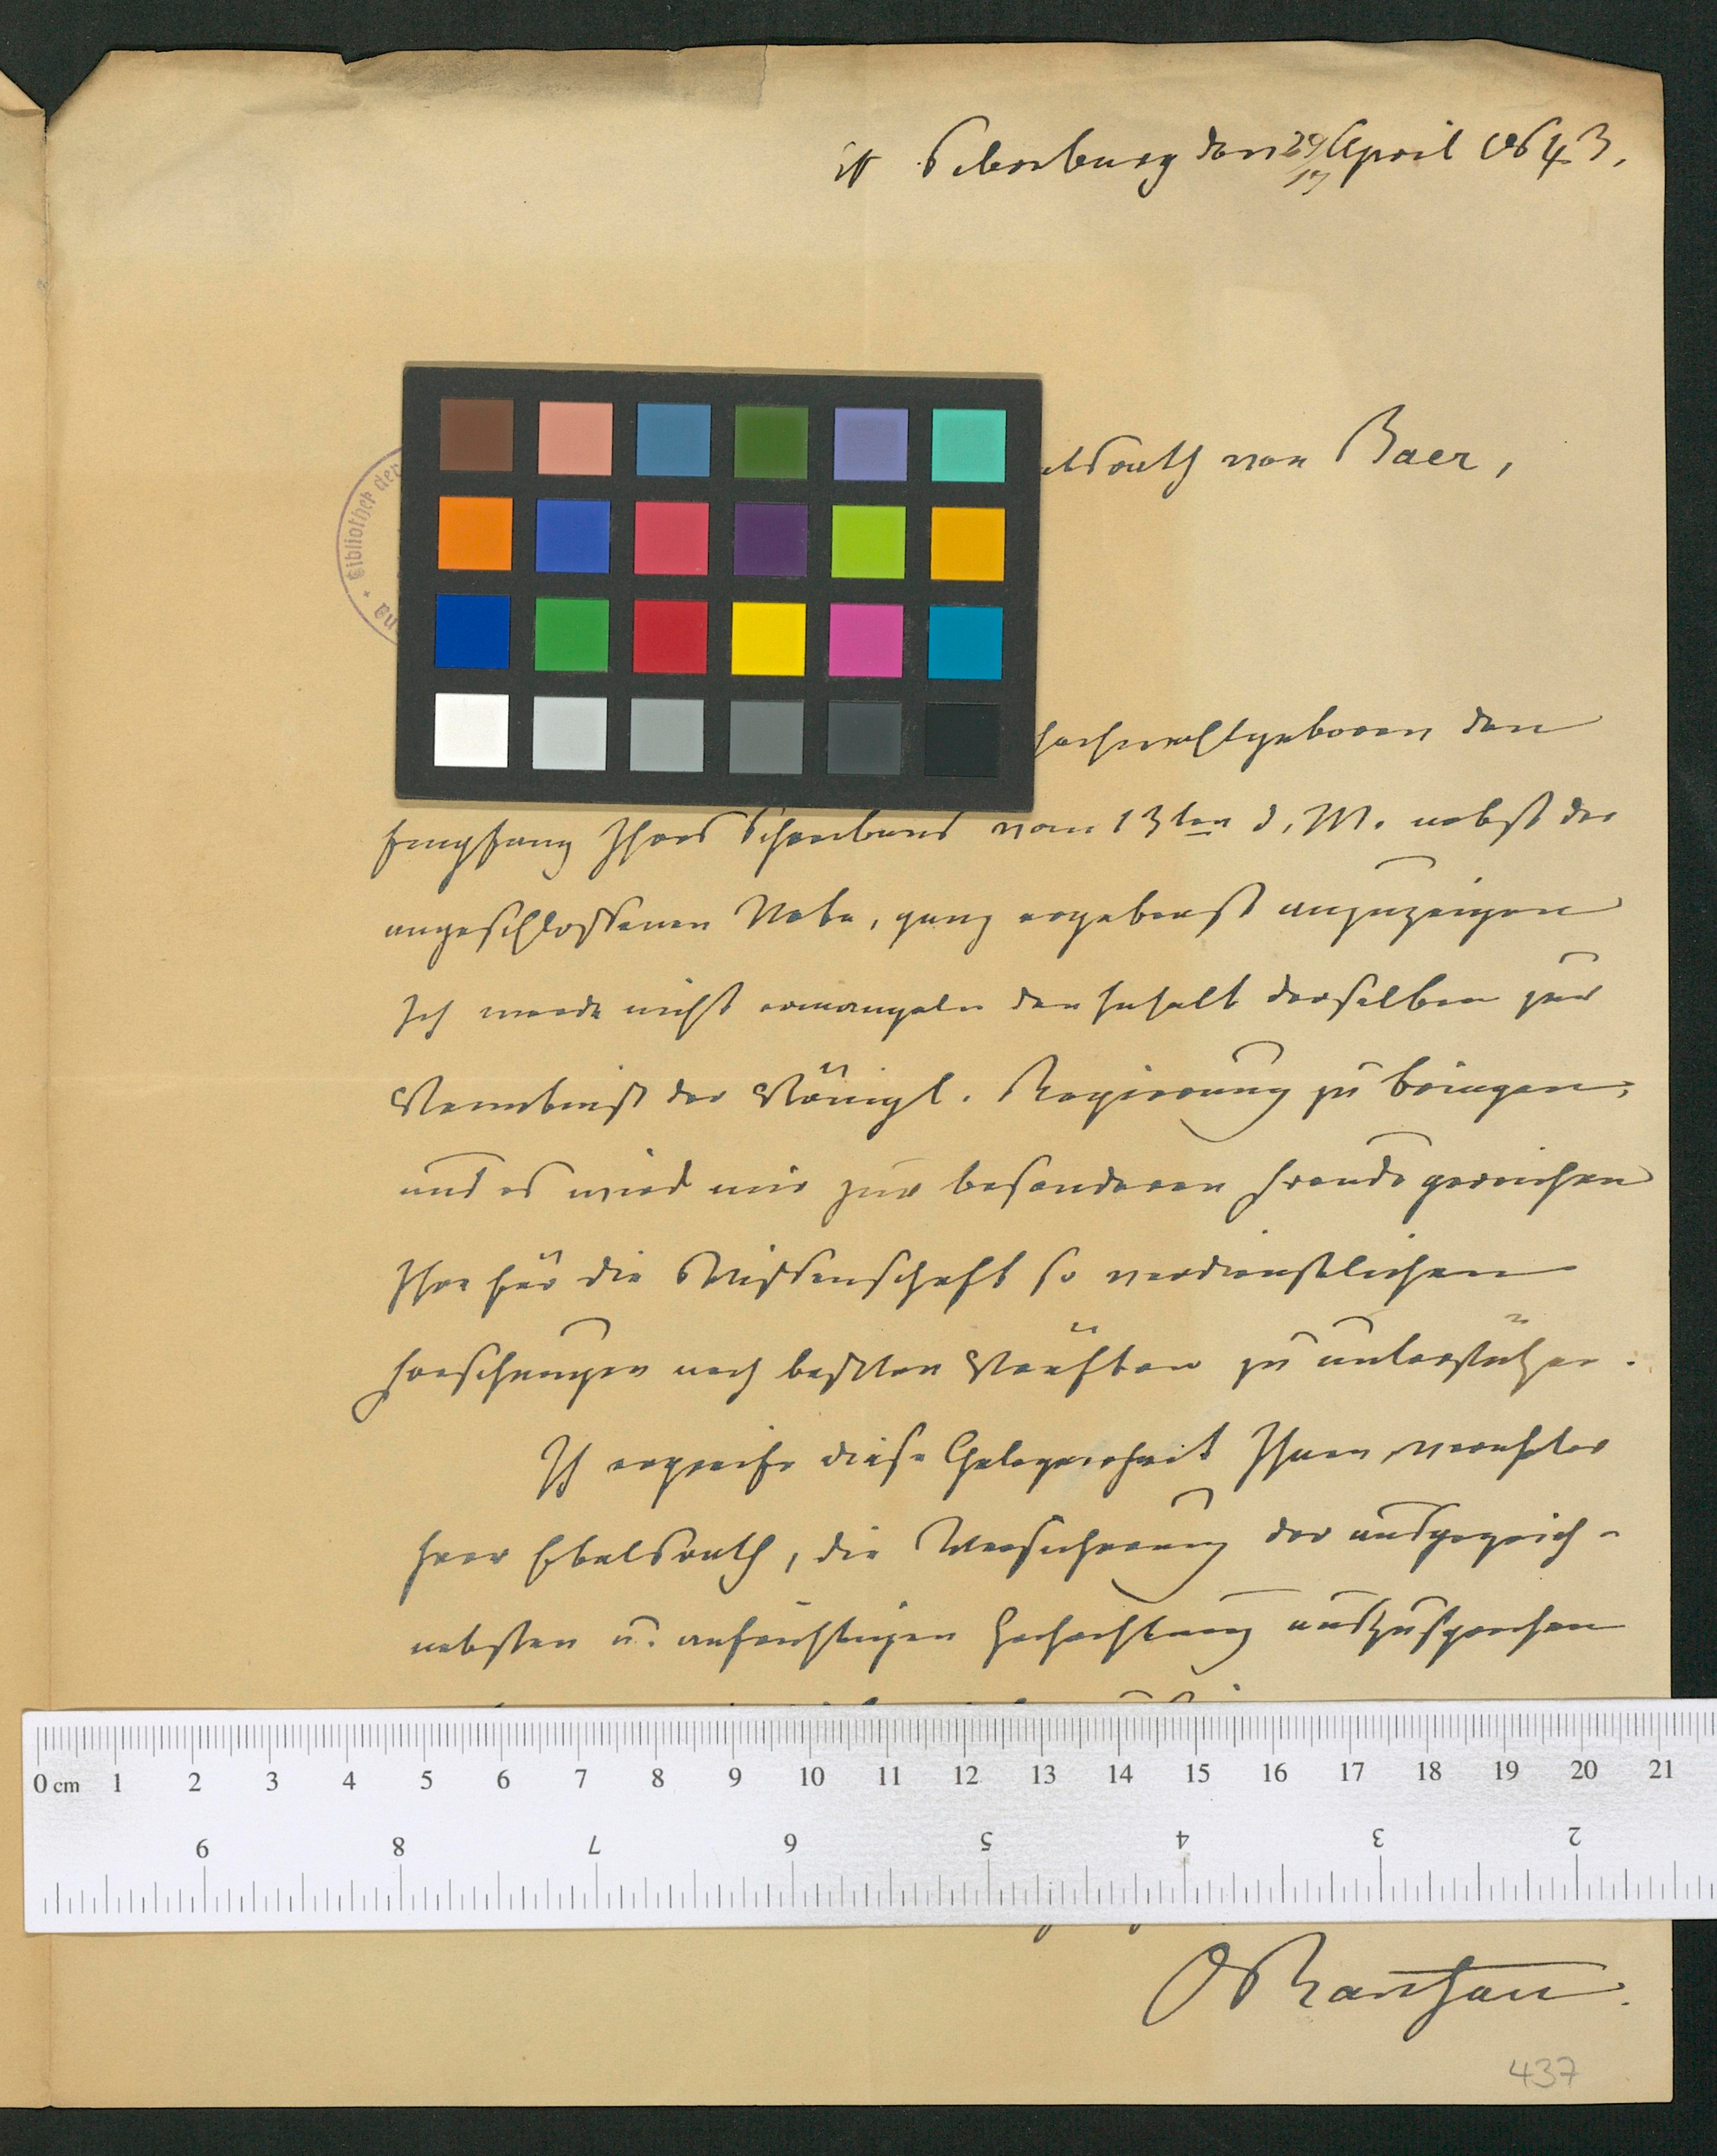 St Petersburg den 29/17 April 1843.
von Baer,
hochwohlgeboren den
Empfang Ihres Schreibens vom 13ten d. M. nebst der
angeschlossenen Note, ganz ergebenst anzuzeigen
Ich werde nicht ermangeln den Inhalt derselben zur
Kenntniß der Königl. Regierung zu bringen,
und es wird mir zur besonderen Freude gereichen
Ihre für die Wissenschaft so verdienstlichen
Forschungen nach besten Kräften zu unterstützen.
Ich ergreife diese Gelegenheit Ihnen, verehrter
Herr Etatsrath, die Versicherung der ausgezeich-
netsten u. aufrichtigen Hochachtung auszusprechen
O Rantzau.
437
Bibliothek der
na
0 cm 1 2 3 4 5 6 7 8 9 10 11 12 13 14 15 16 17 18 19 20 21
9 8 7 6 5 4 3 2